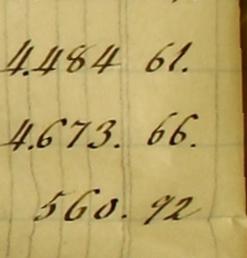 4.484 61.
4.673. 66.
560. 92